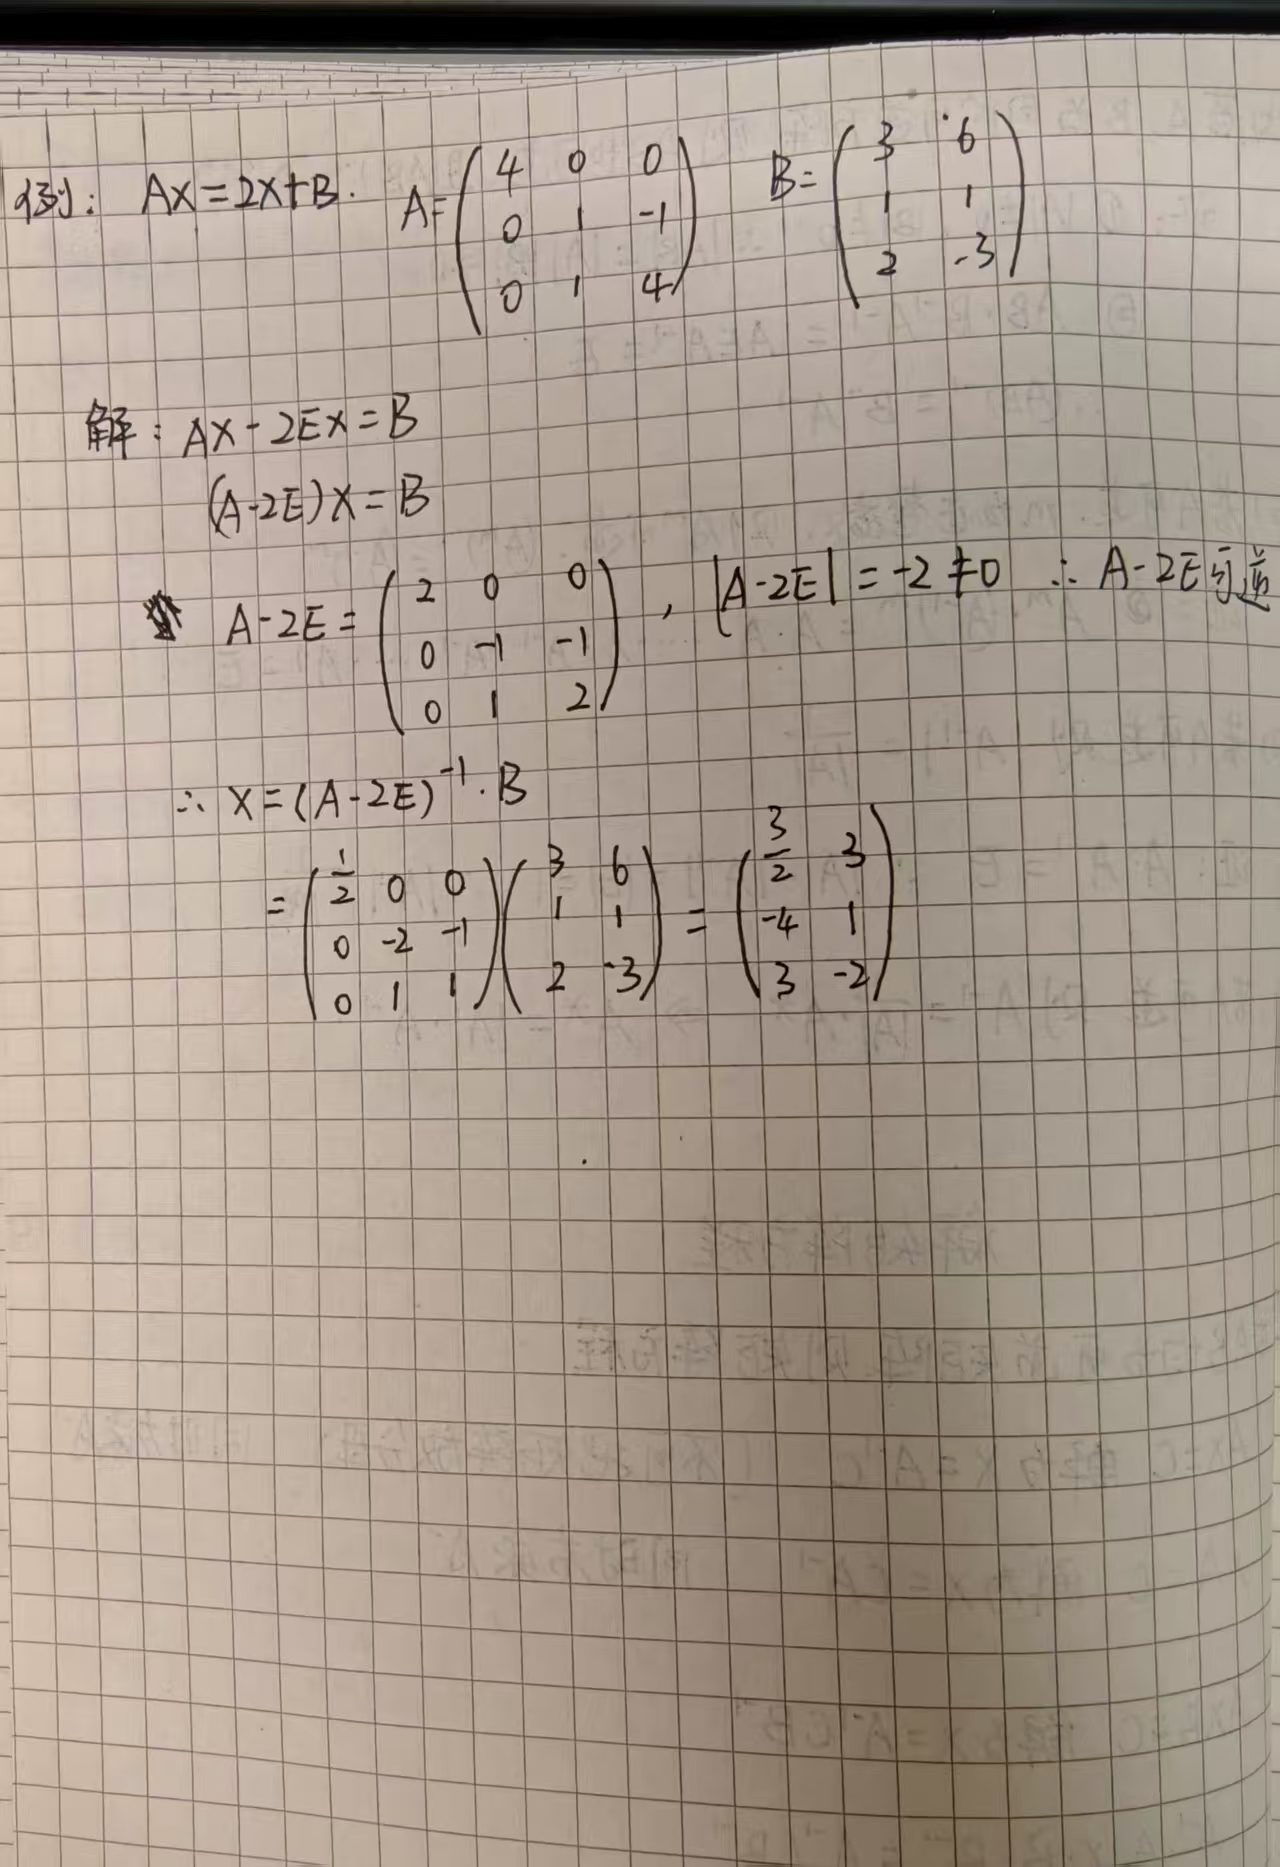 例: AX=2X+B. A=(4 0 0; 0 1 -1; 0 1 4) B=(3 6; 1 1; 2 -3)
解: AX-2EX=B
(A-2E)X=B
A-2E=(2 0 0; 0 -1 -1; 0 1 2), |A-2E|=-2≠0 ∴ A-2E可逆
∴ X=(A-2E)⁻¹·B
=(1/2 0 0; 0 -2 -1; 0 1 1)(3 6; 1 1; 2 -3)=(3/2 3; -4 1; 3 -2)